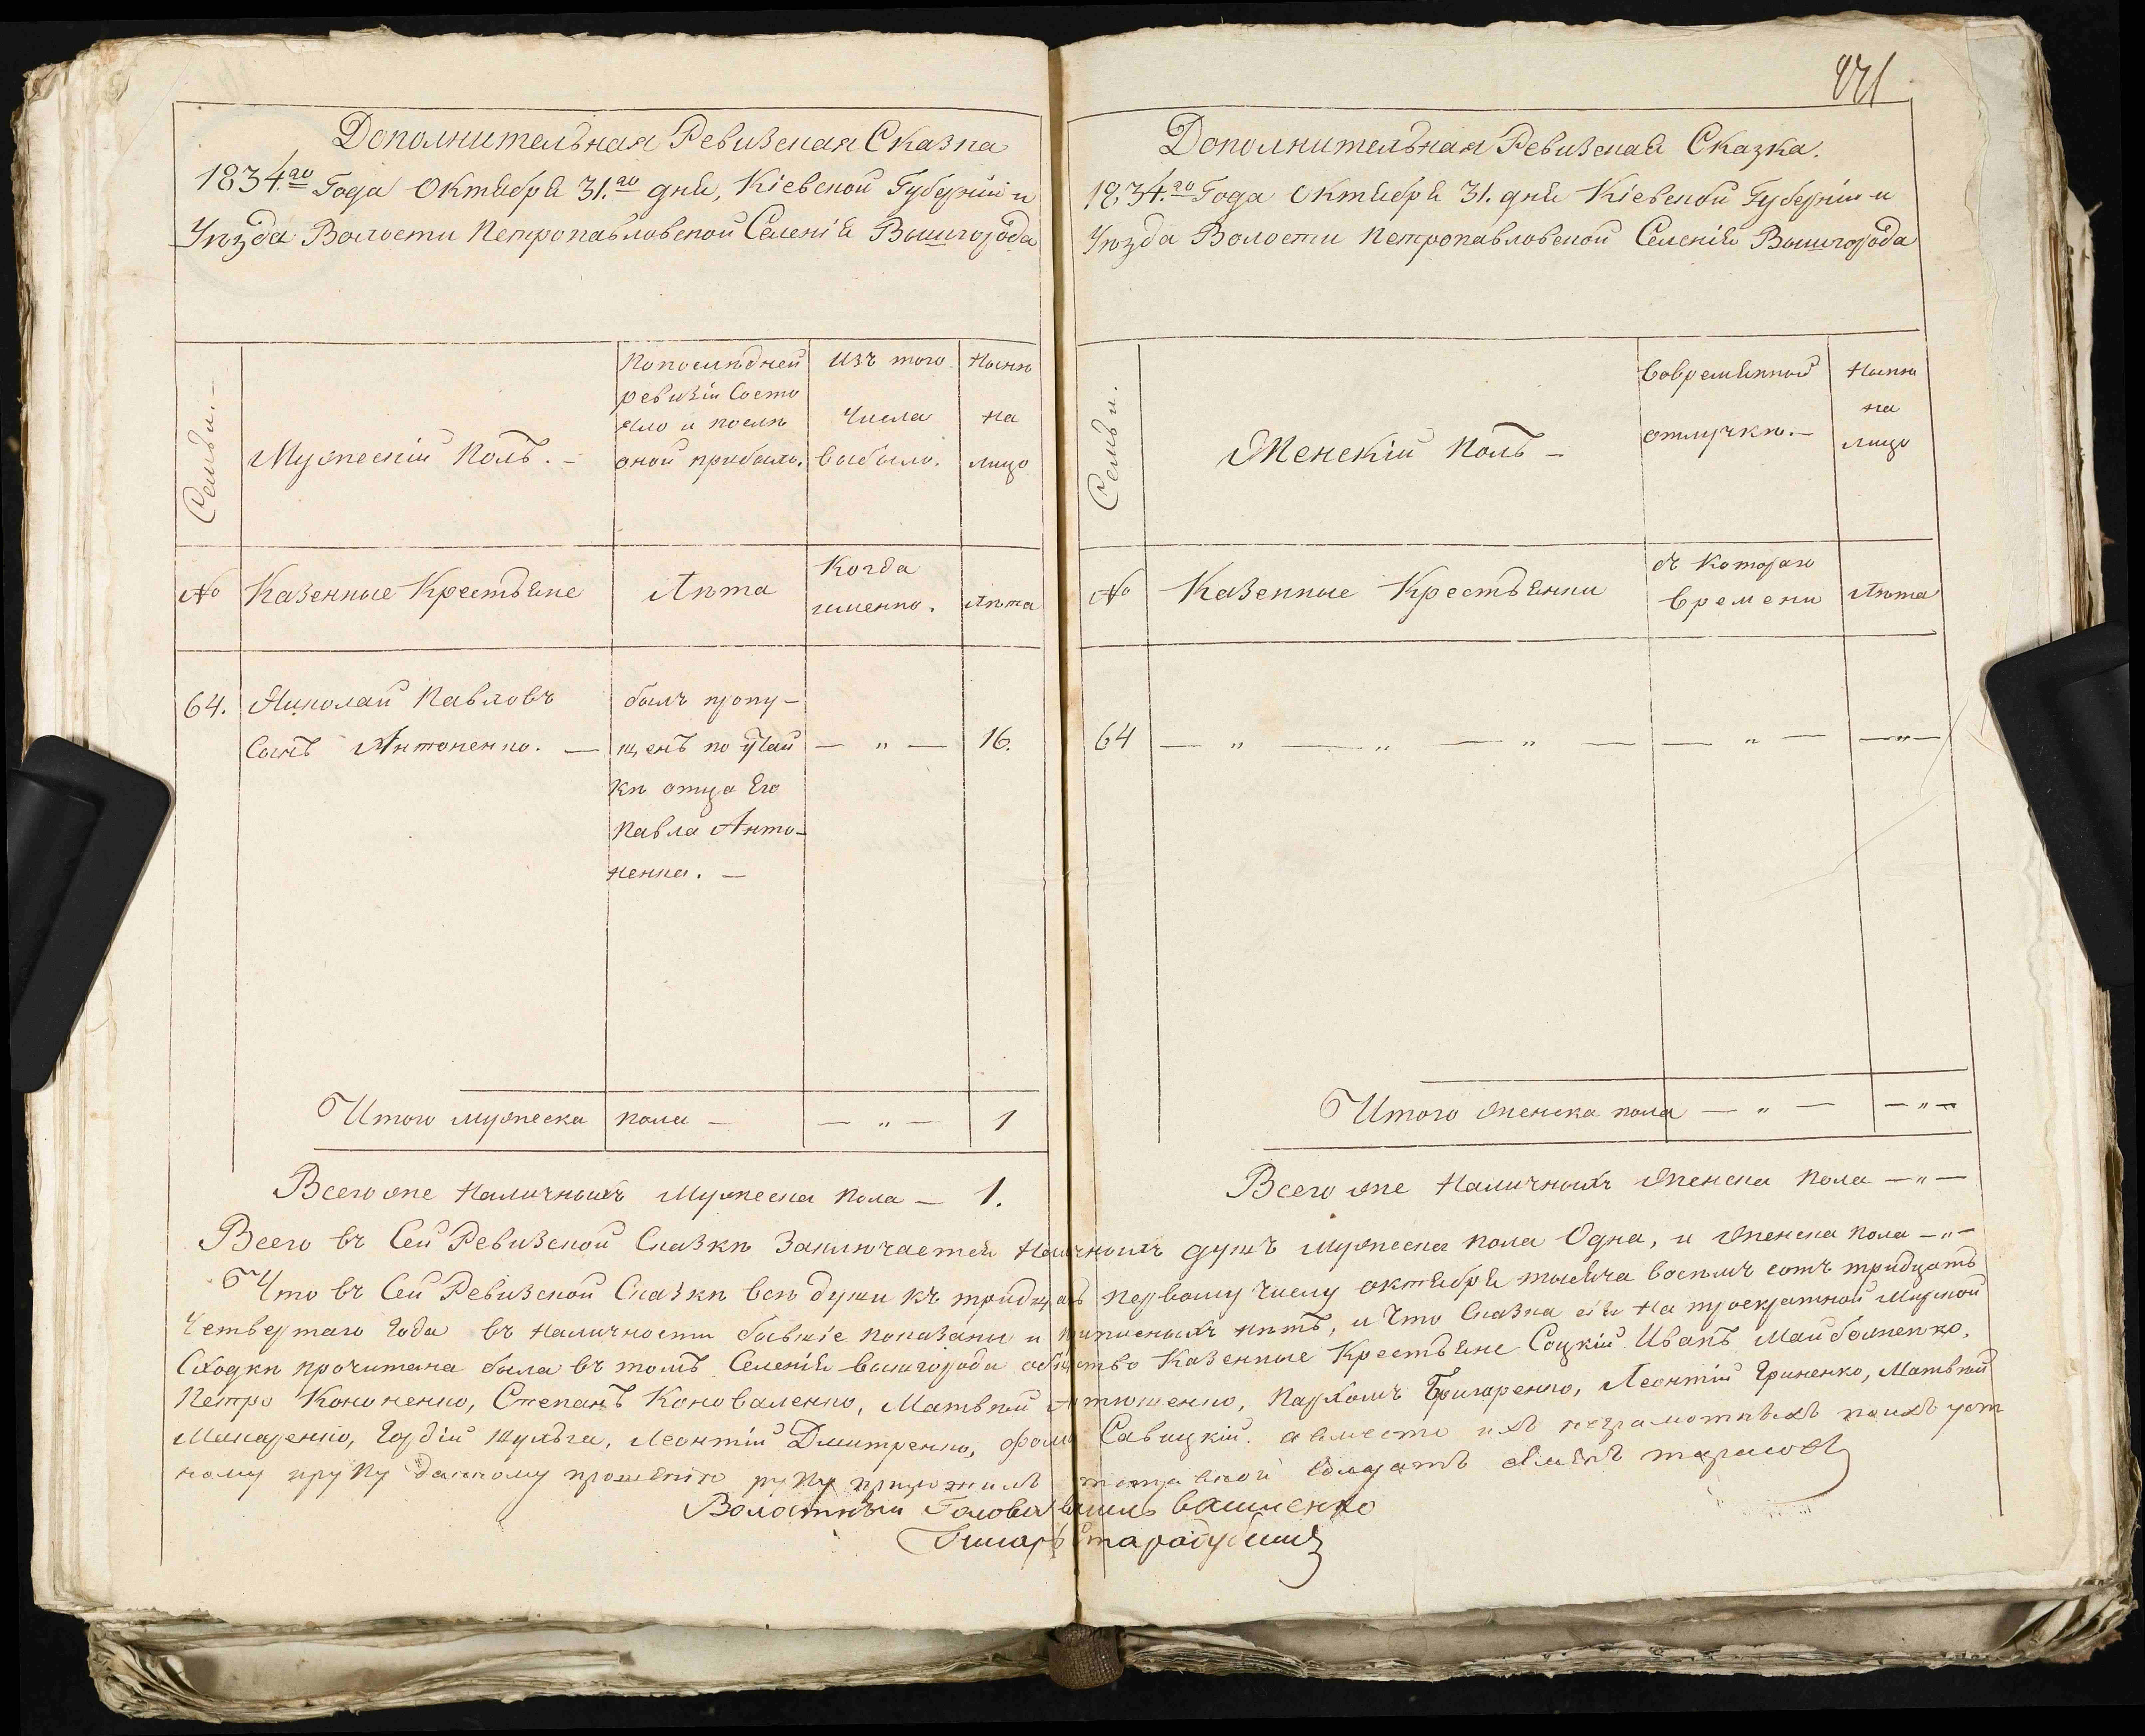 Дополнительная Ревизская Сказка
1834.го Года Октября 31.го дня, Кіевской Губерніи и
Уѣзда Волости Петропавловской Селенія Вышгорода
Семьи.
Мужескій Полъ. –
Попослѣдней
ревизіи Состо
яло и послѣ
оной прибыло.
Изъ того
Числа
выбыло.
Нынѣ
на
лицо
№
Казенные Крестьяне
Лѣта
Когда
именно.
Лѣта
64.
Николай Павловъ
Сынъ Антоненко. —
былъ пропу–
щенъ по утай
кѣ отца Его
Павла Анто–
ненка. —
— „ —
16.
Итого мужеска пола —
— „ —
1
Всего же Наличныхъ Мужеска Пола — 1.
871
Дополнительная Ревизская Сказка.
1834.го Года Октября 31. дня Кіевской Губерніи и
Уѣзда Волости Петропавловской Селенія Вышгорода
Семьи.
Женскій Полъ —
Вовременной
отлучкѣ. –
Нынѣ
на
лицо
№
Казенные Крестьянки
съ Котораго
времени
Лѣта
64
— „ — „ — „ —
— „ —
— „ —
Итого женска пола — „ —
— „ —
Всего же Наличныхъ женска Пола — „ —
Всего въ Сей Ревизской Сказкѣ Заключается Наличныхъ душъ мужеска пола Одна, и женска Пола — „ —
Что въ Сей Ревизской Сказкѣ всѣ души къ тридцать первому числу октября тысяча восемь сотъ тридцать
Четвертаго Года въ наличности бывшіе показаны и прописныхъ нѣтъ, и Что Сказка сія на троекратной Мирской
Сходкѣ прочитана была въ томъ Селеніи вышгорода общество Казенные Крестьяне Соцкій Иванъ Майбоженко,
Петро Кононенко, Степанъ Коноваленко, Матвей Артюшенко, Пархомъ Григоренко, Леонтій Гриненко, Матвей
Макаренко, Гордій Шульга, Леонтій Дмитренко, Фома Савицкій. авместо ихъ неграмотныхъ
данному прошенію руку приложилъ
Волостный Голова вашленко
Писарь Стародубецъ